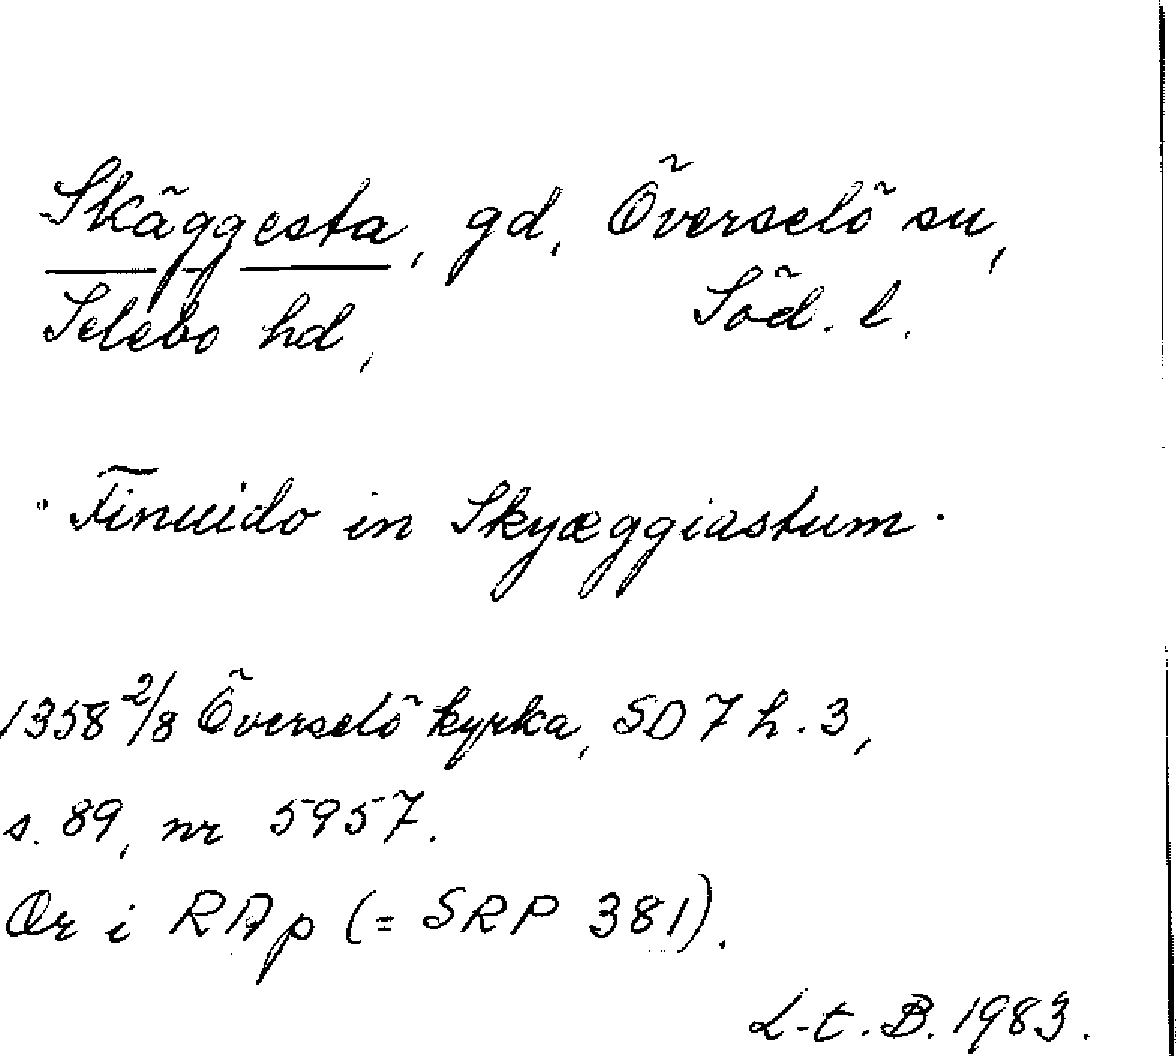 Skäggesta, gd, Överselö sn,
Selebo hd, Söd. l.
"Finuido in Skyæggiastum"
1358 2/8 Överselö kyrka, SD 7 h. 3,
s. 89, nr 5957.
Or i RAp (= SRP 381).
L-t. B. 1983.